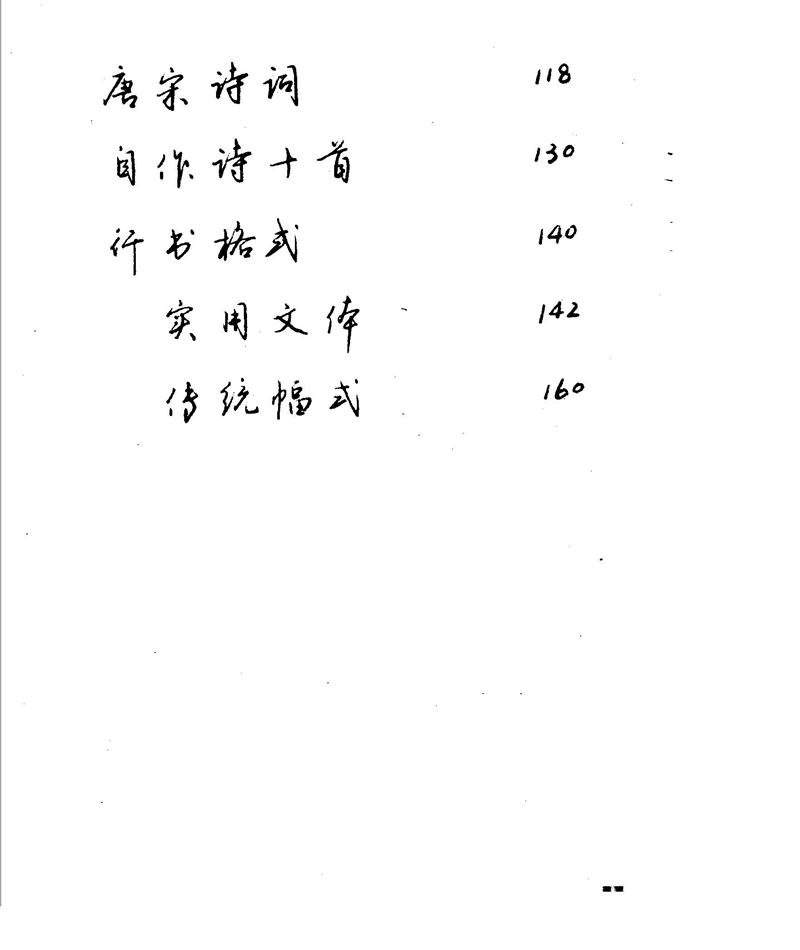 唐宋诗词 118
自作诗十首 130
行书格式 140
实用文体 142
传统幅式 160